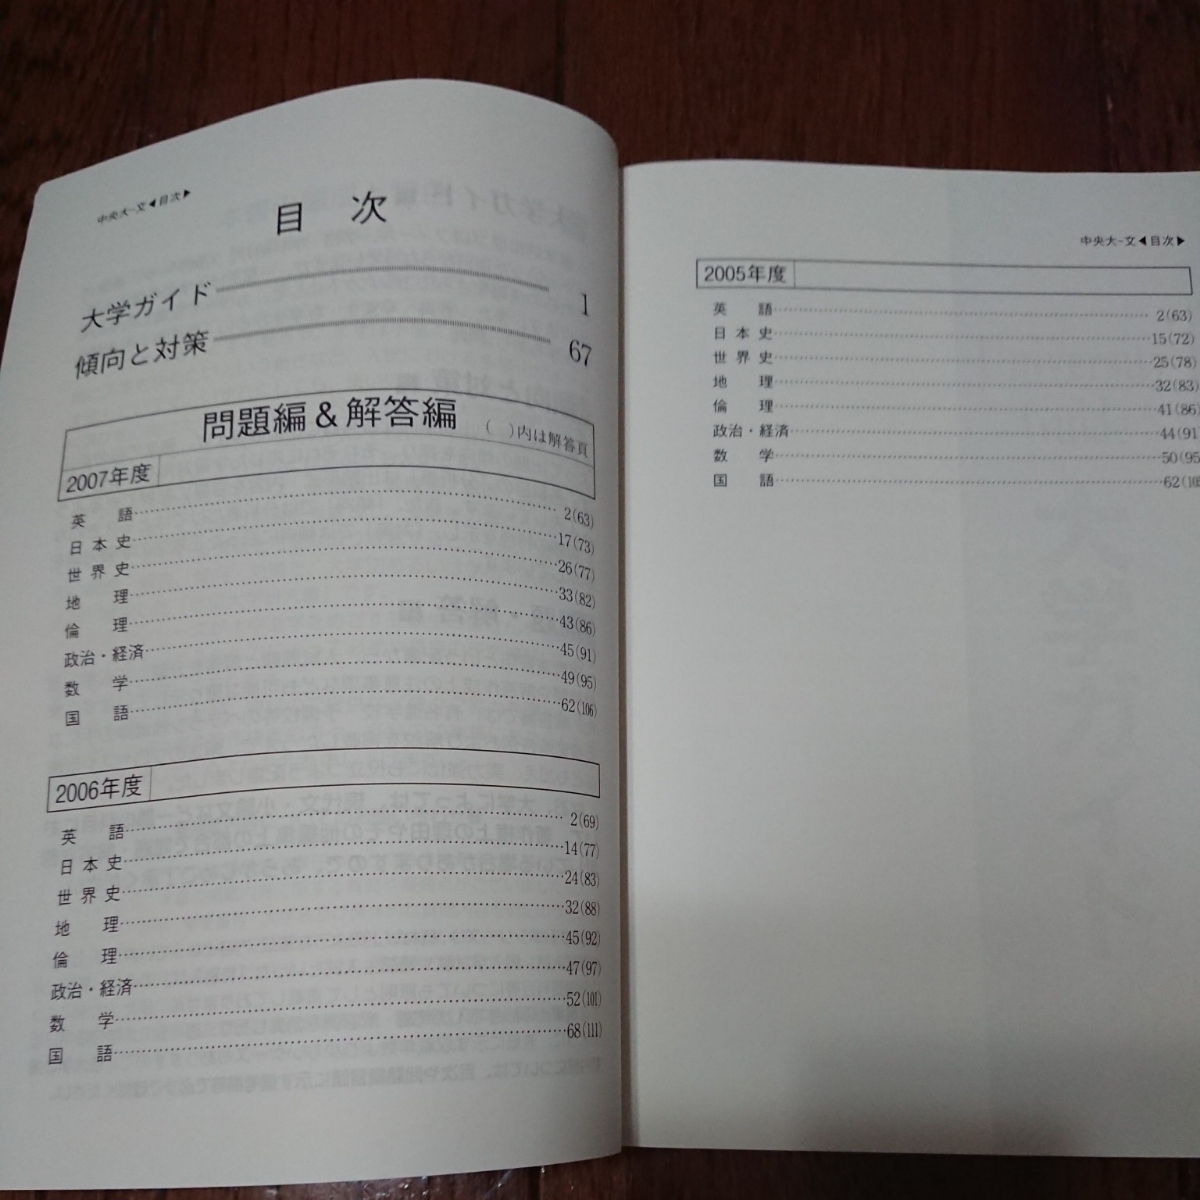 中央大-文◀目次▶
目 次
大学ガイド 1
傾向と対策 67
問題編&解答編 ( )内は解答頁
2007年度
英 語 2(63)
日本史 17(73)
世界史 26(77)
地 理 33(82)
倫 理 43(86)
政治・経済 45(91)
数 学 49(95)
国 語 62(106)
2006年度
英 語 2(69)
日本史 14(77)
世界史 24(83)
地 理 32(88)
倫 理 45(92)
政治・経済 47(97)
数 学 52(101)
国 語 68(111)
中央大-文◀目次▶
2005年度
英 語 2(63)
日本史 15(72)
世界史 25(78)
地 理 32(83)
倫 理 41(86)
政治・経済 44(91
数 学 50(95
国 語 62(105